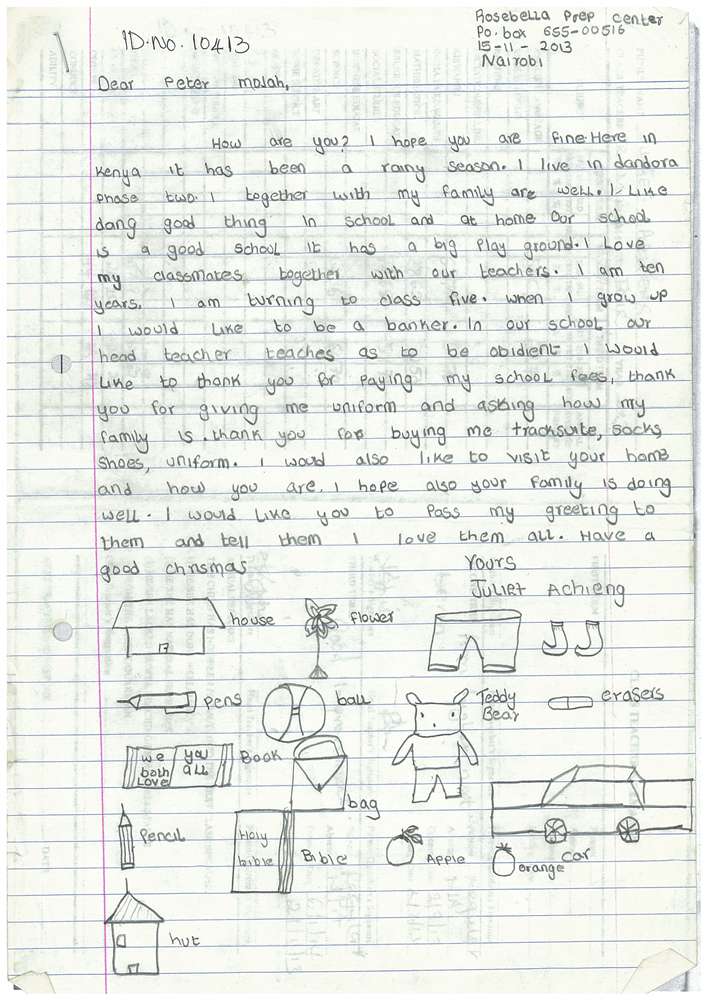 Rosebella Prep center
ID.No. 10413
Po.box 655-00516
15-11-2013
Nairobi
Dear Peter molah,
How are you? I hope you are fine.Here in
Kenya it has been a rainy season. I live in dandora
Phase two. I together with my family are well. I Like
dang good thing in school and at home Our school
is a good school it has a big Play ground. I Love
my classmates together with our teachers. I am ten
years. I am turning to class five. when I grow up
I would Like to be a banker. In our school our
head teacher teaches as to be obidient I would
Like to thank you for paying my school fees, thank
you for giving me uniform and asking how my
family is. thank you for buying me tracksuite, socks,
shoes, uniform. I would also like to visit your home
and how you are. I hope also your family is doing
well. I would Like you to Pass my greeting to
them and tell them I love them all. Have a
good chrismas
Yours
Juliet Achieng
house
flower
pens
ball
Teddy
Bear
erasers
we
both
Love
you
all
Book
bag
Pencil
Holy
bible
Bible
Apple
orange
car
hut